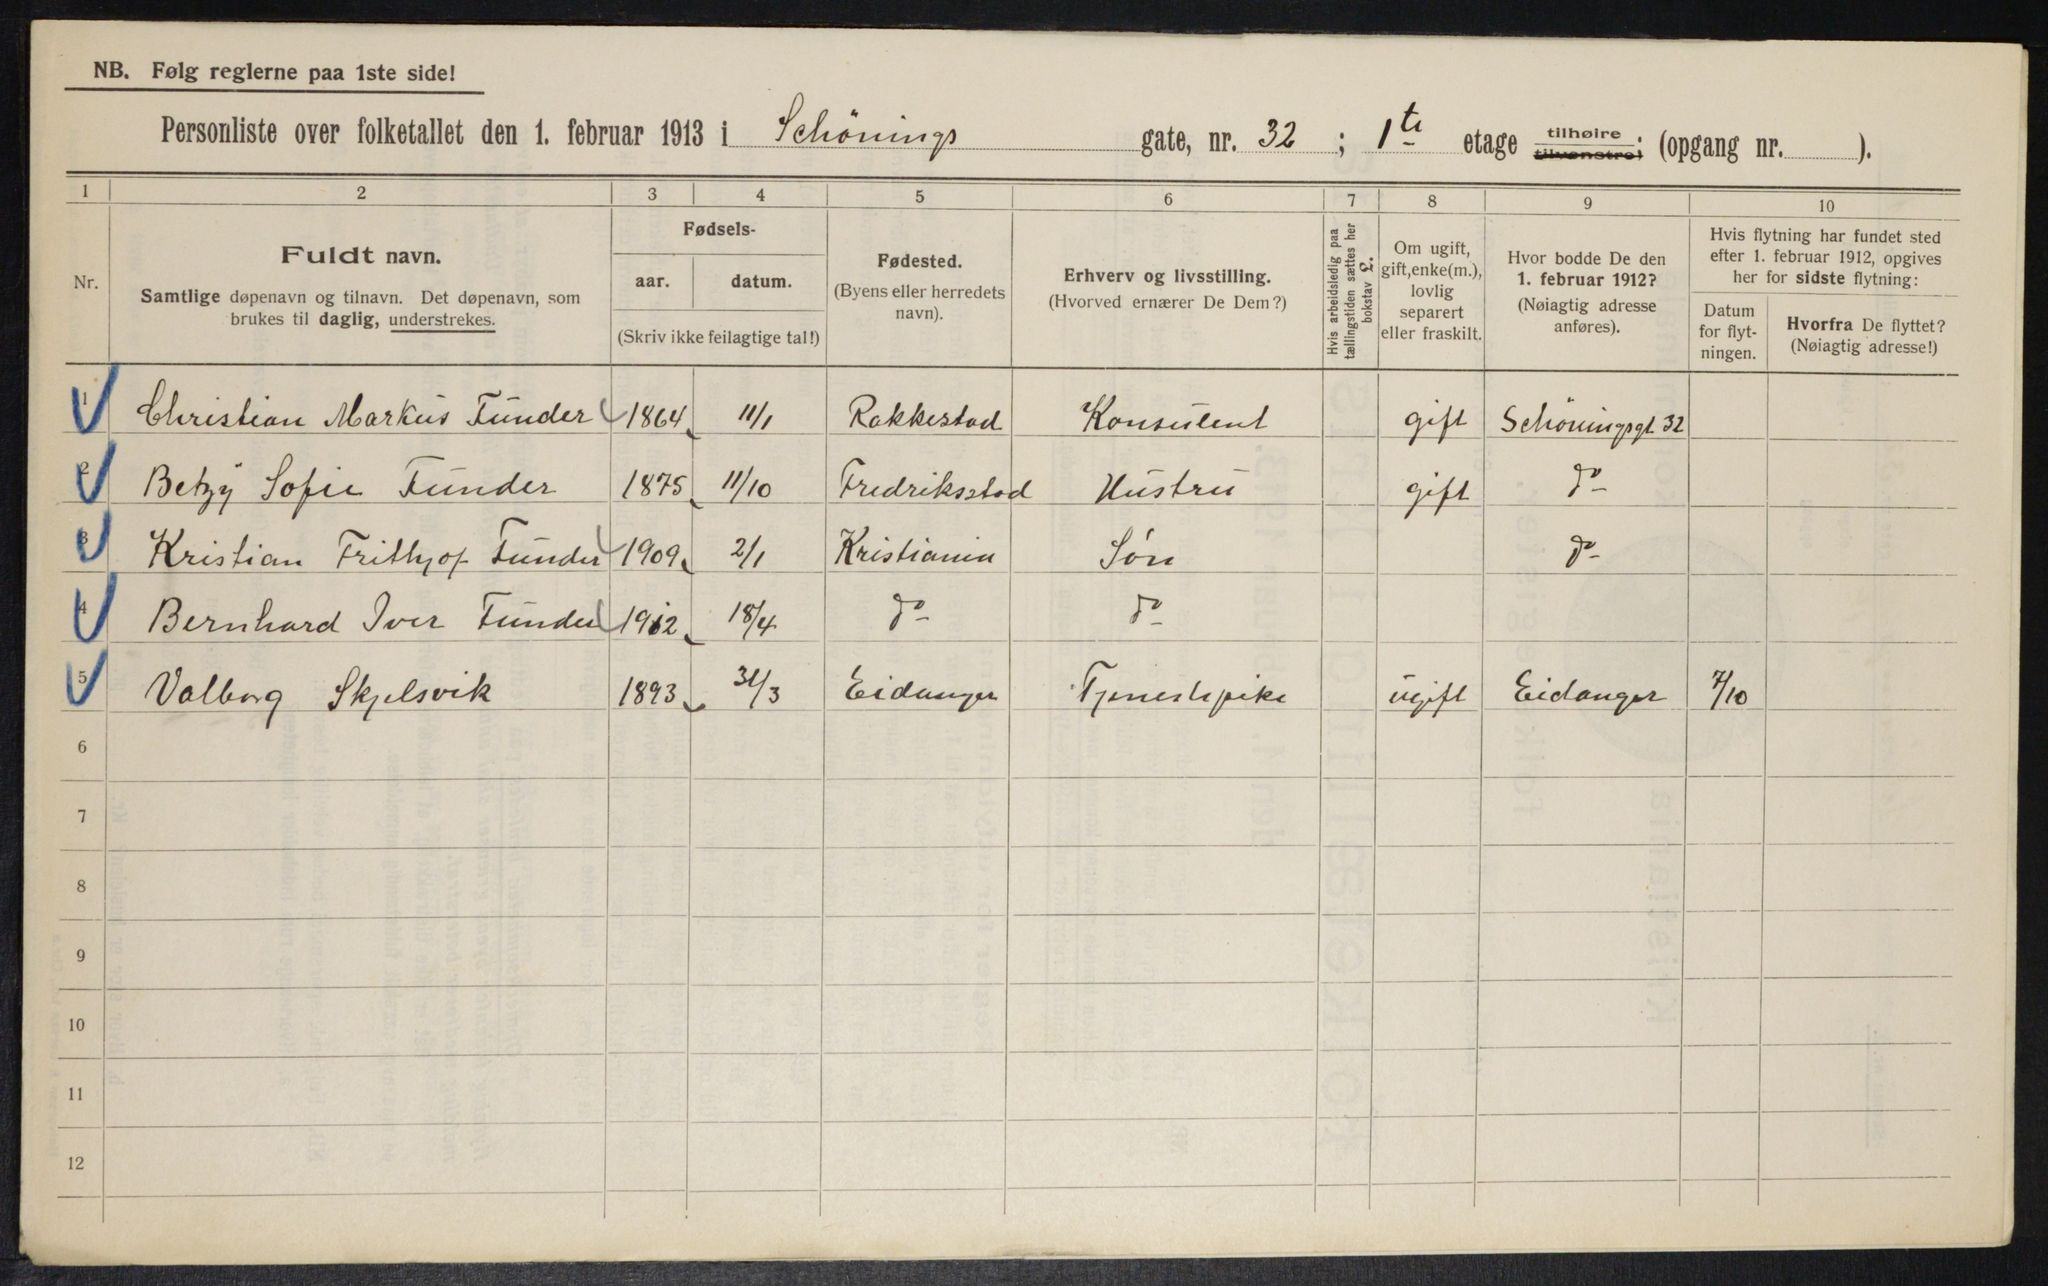 NB. Følg reglerne paa 1ste side!
Personliste over folketallet den 1. februar 1913 i Schönings gate, nr. 32 ; 1ste etage tilhøire tilvenstre; (opgang nr. ).
1 2 3 4 5 6 7 8 9 10
Nr.
Fuldt navn.
Samtlige døpenavn og tilnavn. Det døpenavn, som
brukes til daglig, understrekes.
Fødsels-
aar. datum.
(Skriv ikke feilagtige tal!)
Fødested.
(Byens eller herredets
navn).
Erhverv og livsstilling.
(Hvorved ernærer De Dem?)
Hvis arbeidsledig paa
tællingstiden sættes her
bokstav L.
Om ugift,
gift, enke(m.),
lovlig
separert
eller fraskilt.
Hvor bodde De den
1. februar 1912?
(Nøiagtig adresse
anføres).
Hvis flytning har fundet sted
efter 1. februar 1912, opgives
her for sidste flytning:
Datum
for flyt-
ningen.
Hvorfra De flyttet?
(Nøiagtig adresse!)
1 Christian Markus Funder 1864 11/1 Rakkestad Konsulent gift Schöningsgt 32
2 Betzÿ Sofie Funder 1875 11/10 Fredriksstad Hustru gift do
3 Kristian Frithjof Funder 1909 2/1 Kristiania Søn do
4 Bernhard Iver Funder 1912 18/4 do do
5 Valborg Skjelsvik 1893 31/3 Eidanger Tjenestepike ugift Eidanger 7/10
6
7
8
9
10
11
12